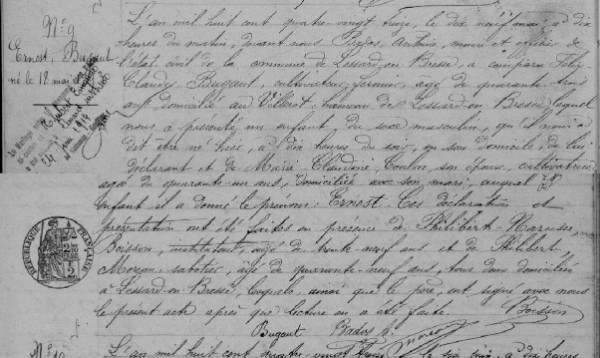 N° 9
Ernest, Bugaut
né le 18 mai
L'an mil huit cent quatre-vingt onze, le dix neuf mai, à dix
heures du matin, devant nous Bridos, Antoine, maire et officier de
l'état civil de la commune de Lessard-en-Bresse, a comparu
Claude Bugaut, cultivateur-fermier, âgé de quarante-trois
ans domicilié au Villerot, hameau de Lessard-en-Bresse lequel
nous a présenté un enfant du sexe masculin, qu'il nous a
dit être né hier, à dix heures du soir, en son domicile, de lui
déclarant et de Marie Claudine Coulon, son épouse, cultivatrice
âgée de quarante un ans, domiciliée avec son mari, auquel
enfant il a donné le prénom: Ernest. Ces déclaration et
présentation ont été faites en présence de Philibert-
Boisson, instituteur, âgé de trente-neuf ans et de Philibert
sabotier, âgé de quarante-neuf ans, tous deux domiciliés
à Lessard-en-Bresse, lesquels, ainsi que le père, ont signé avec nous
le présent acte après que lecture en a été faite. Boisson
Bugaut
RÉPUBLIQUE FRANÇAISE
N° 10
L'an mil huit cent quatre-vingt onze, le dix heures